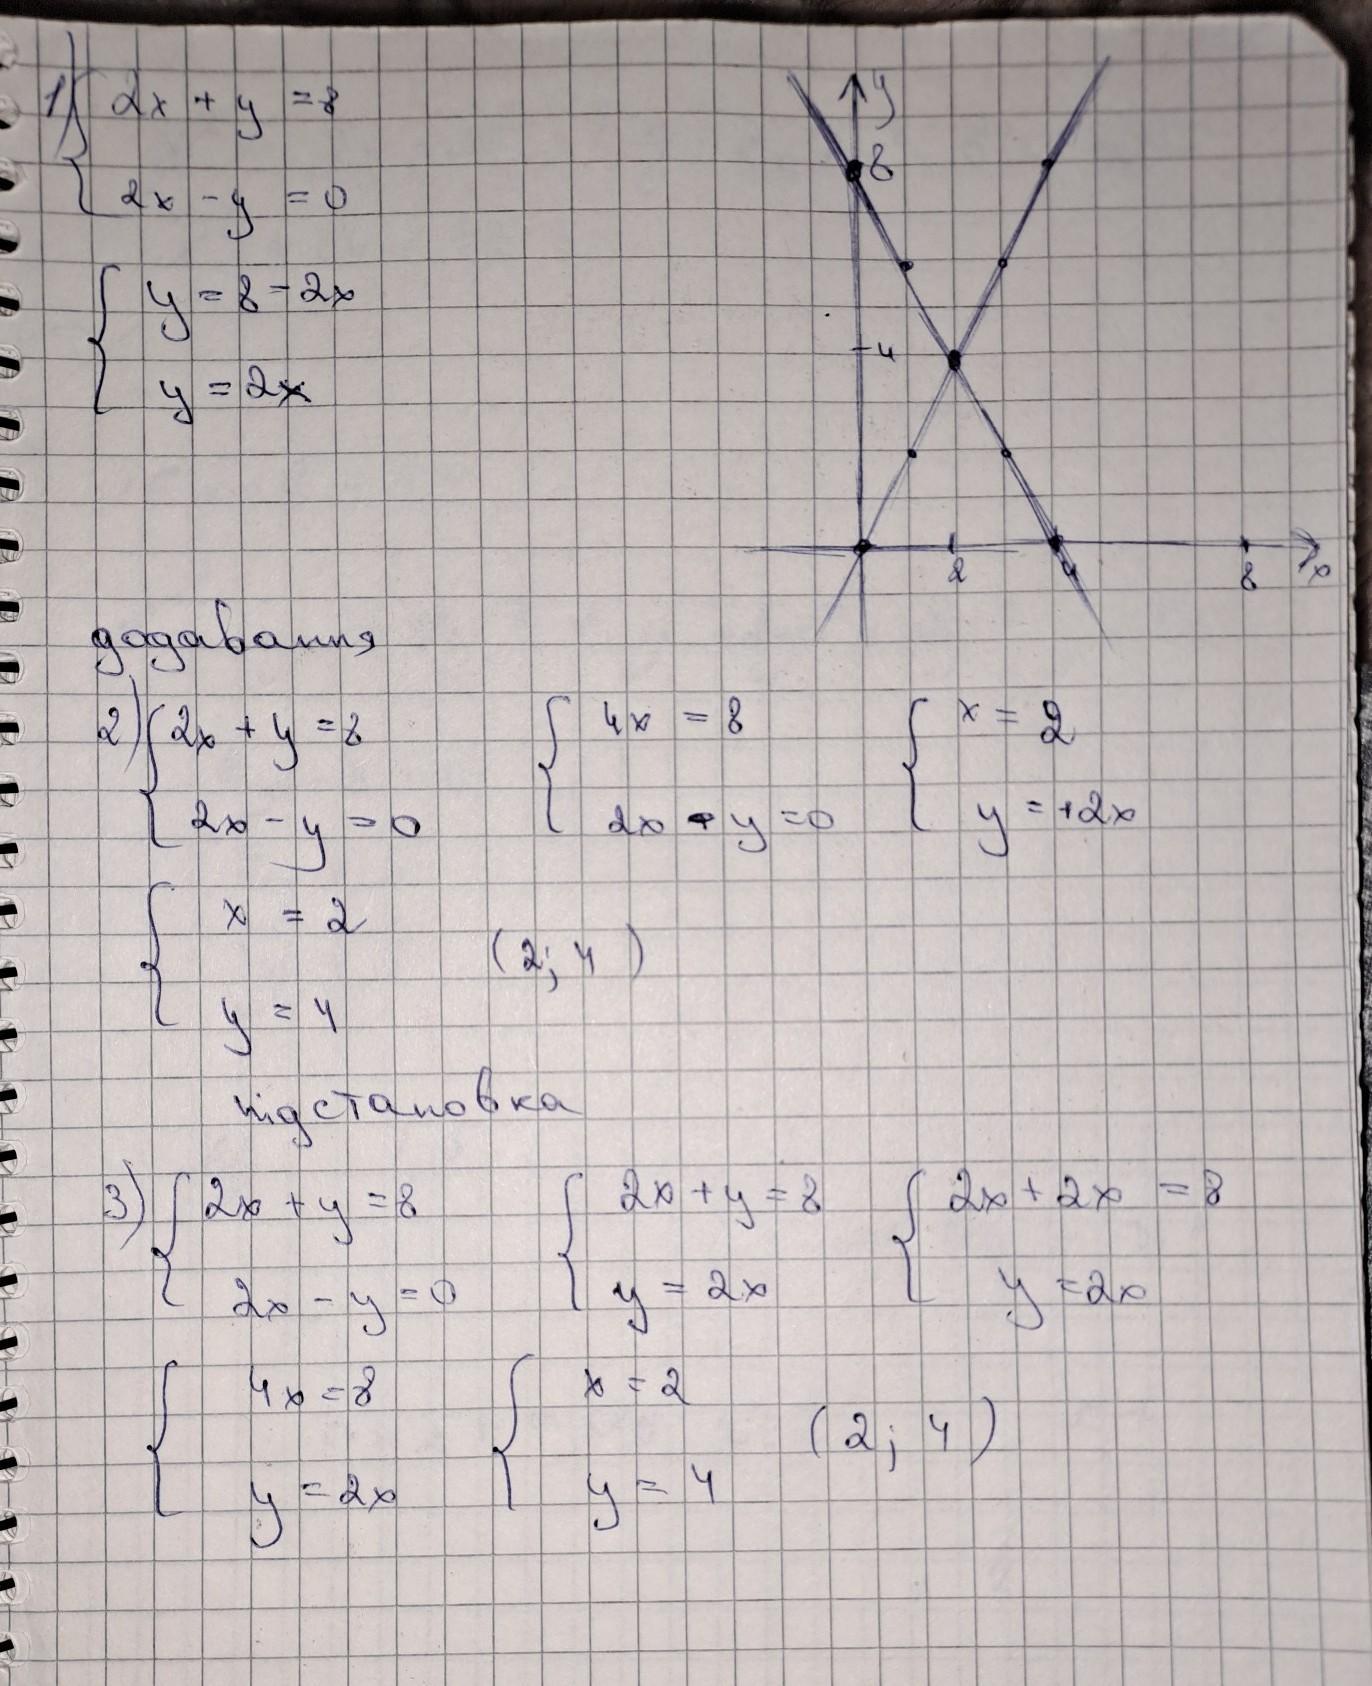 1) 2x + y = 8
2x - y = 0
y = 8 - 2x
y = 2x
y
8
4
2 4 8 x
додавання
2) 2x + y = 8 4x = 8 x = 2
2x - y = 0 2x - y = 0 y = +2x
x = 2
y = 4
(2; 4)
підстановка
3) 2x + y = 8 2x + y = 8 2x + 2x = 8
2x - y = 0 y = 2x y = 2x
4x = 8 x = 2
y = 2x y = 4
(2; 4)